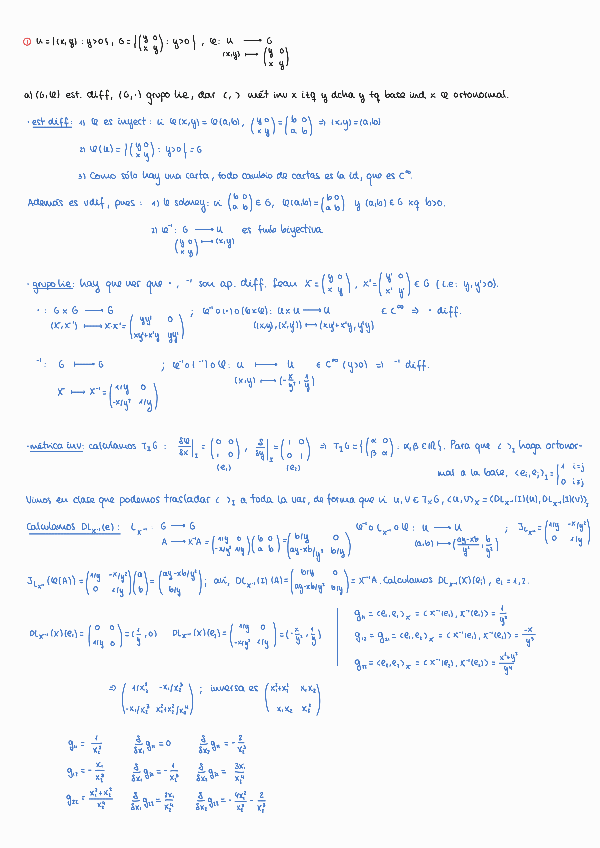 ① U={(x,y) : y>0}, G={(y 0 / x y) : y>0}, φ: U ⟶ G
(x,y) ⟼ (y 0 / x y)
a) (G,φ) est. diff, (G,·) grupo lie, dar <,> mét inv x itq y dcha y tq base ind x φ ortonormal.
· est diff: 1) φ es inyect: si φ(x,y)=φ(a,b), (y 0 / x y)=(b 0 / a b) ⇒ (x,y)=(a,b)
2) φ(U)={(y 0 / x y) : y>0}=G
3) Como sólo hay una carta, todo cambio de cartas es la id, que es C^∞.
Además es vdif, pues: 1) φ sobrey: si (b 0 / a b) ∈ G, φ(a,b)=(b 0 / a b) y (a,b) ∈ G xq b>0.
2) φ⁻¹: G ⟶ U es biyectiva
(y 0 / x y) ⟼ (x,y)
· grupo lie: hay que ver que ·, ⁻¹ son ap. diff. Sean X=(y 0 / x y), X'=(y' 0 / x' y') ∈ G (i.e: y,y'>0).
· : G x G ⟶ G ; φ⁻¹∘(·)∘(φxφ): UxU ⟶ U ∈ C^∞ ⇒ · diff.
(X,X') ⟼ X·X'=(yy' 0 / xy'+x'y yy') ((x,y),(x',y')) ⟼ (xy'+x'y, y'y)
⁻¹: G ⟼ G ; φ⁻¹∘(⁻¹)∘φ: U ⟶ U ∈ C^∞ (y>0) ⇒ ⁻¹ diff.
X ⟼ X⁻¹=(1/y 0 / -x/y² 1/y) (x,y) ⟼ (-x/y², 1/y)
· métrica inv: calculamos T_I G : δφ/δx|_I = (0 0 / 1 0), δ/δy|_I = (1 0 / 0 1) ⇒ T_I G={(α 0 / β α) : α,β∈ℝ}. Para que <>_I haga ortonor-
(e₁) (e₂) mal a la base, <e_i,e_j>_I = {1 i=j / 0 i≠j
Vimos en clase que podemos trasladar <>_I a toda la var, de forma que si u,v ∈ T_X G, <u,v>_X = <DL_X⁻¹(I)(u), DL_X⁻¹(I)(v)>_I
Calculamos DL_X⁻¹(e): L_X⁻¹: G ⟶ G φ⁻¹∘L_X⁻¹∘φ: U ⟶ U ; J_L_X⁻¹=(1/y -x/y² / 0 1/y)
A ⟶ X⁻¹A=(1/y 0 / -x/y² 1/y)(b 0 / a b)=(b/y 0 / ay-xb/y² b/y) (a,b) ⟼ (ay-xb/y², b/y)
J_L_X⁻¹(φ(A))=(1/y -x/y² / 0 1/y)(a / b)=(ay-xb/y² / b/y); así, DL_X⁻¹(I)(A)=(b/y 0 / ay-xb/y² b/y)=X⁻¹A. Calculamos DL_X⁻¹(X)(e_i), e_i=1,2.
DL_X⁻¹(X)(e₁)=(0 0 / 1/y 0)=(1/y, 0) DL_X⁻¹(X)(e₂)=(1/y 0 / -x/y² 1/y)=(-x/y², 1/y)
g₁₁=<e₁,e₁>_X=<X⁻¹(e₁), X⁻¹(e₁)>=1/y²
g₁₂=g₂₁=<e₁,e₂>_X=<X⁻¹(e₁), X⁻¹(e₂)>=-x/y³
g₂₂=<e₂,e₂>_X=<X⁻¹(e₂), X⁻¹(e₂)>=x²+y²/y⁴
⇒ (1/x₂² -x₁/x₂³ / -x₁/x₂³ x₁²+x₂²/x₂⁴); inversa es (x₁²+x₂² x₁x₂ / x₁x₂ x₂²)
g₁₁=1/x₂² δ/δx₁ g₁₁=0 δ/δx₂ g₁₁=-2/x₂³
g₁₂=-x₁/x₂³ δ/δx₁ g₁₂=-1/x₂³ δ/δx₂ g₁₂=3x₁/x₂⁴
g₂₂=x₁²+x₂²/x₂⁴ δ/δx₁ g₂₂=2x₁/x₂⁴ δ/δx₂ g₂₂=-4x₁²/x₂⁵-2/x₂³